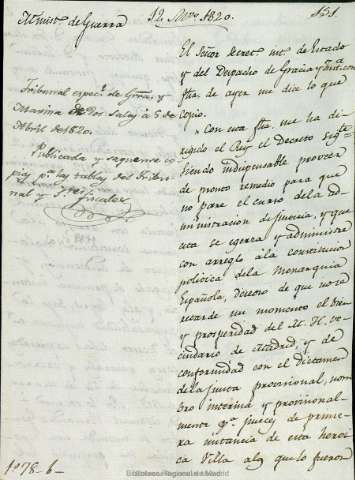 Minist.º de Guerra
12 Mrzo 1820.
Tribunal espec.l de Grra y
Marina en dos Salas à 5 de
Abril de 1820.
Publicada y saquense co
pias p.a las tablas del Tribu
nal y S.res Fiscales
El Señor Secret. int. de Estado
y del Despacho de Gracia y Just.a con
fha. de ayer me dice lo que
copio.
Con esta fha. me ha di
rigido el Rey el Decreto sig.te
Siendo indispensable proveer
de pronto remedio para que
no pare el curso de la ad
ministracion de justicia, y que
esta se egerza y administre
con arreglo á la constitucion
politica de la Monarquia
Española, deseoso de que no se
retarde un momento el bien
y prosperidad del M. H. ve
cindario de Madrid, y de
conformidad con el dictamen
de la Junta provisional, nom
bro interina y provisional
mente p.r Jueces de prime
ra instancia de esta heroi
ca Villa a los que lo fueron
1078-6-
Biblioteca Regional de Madrid